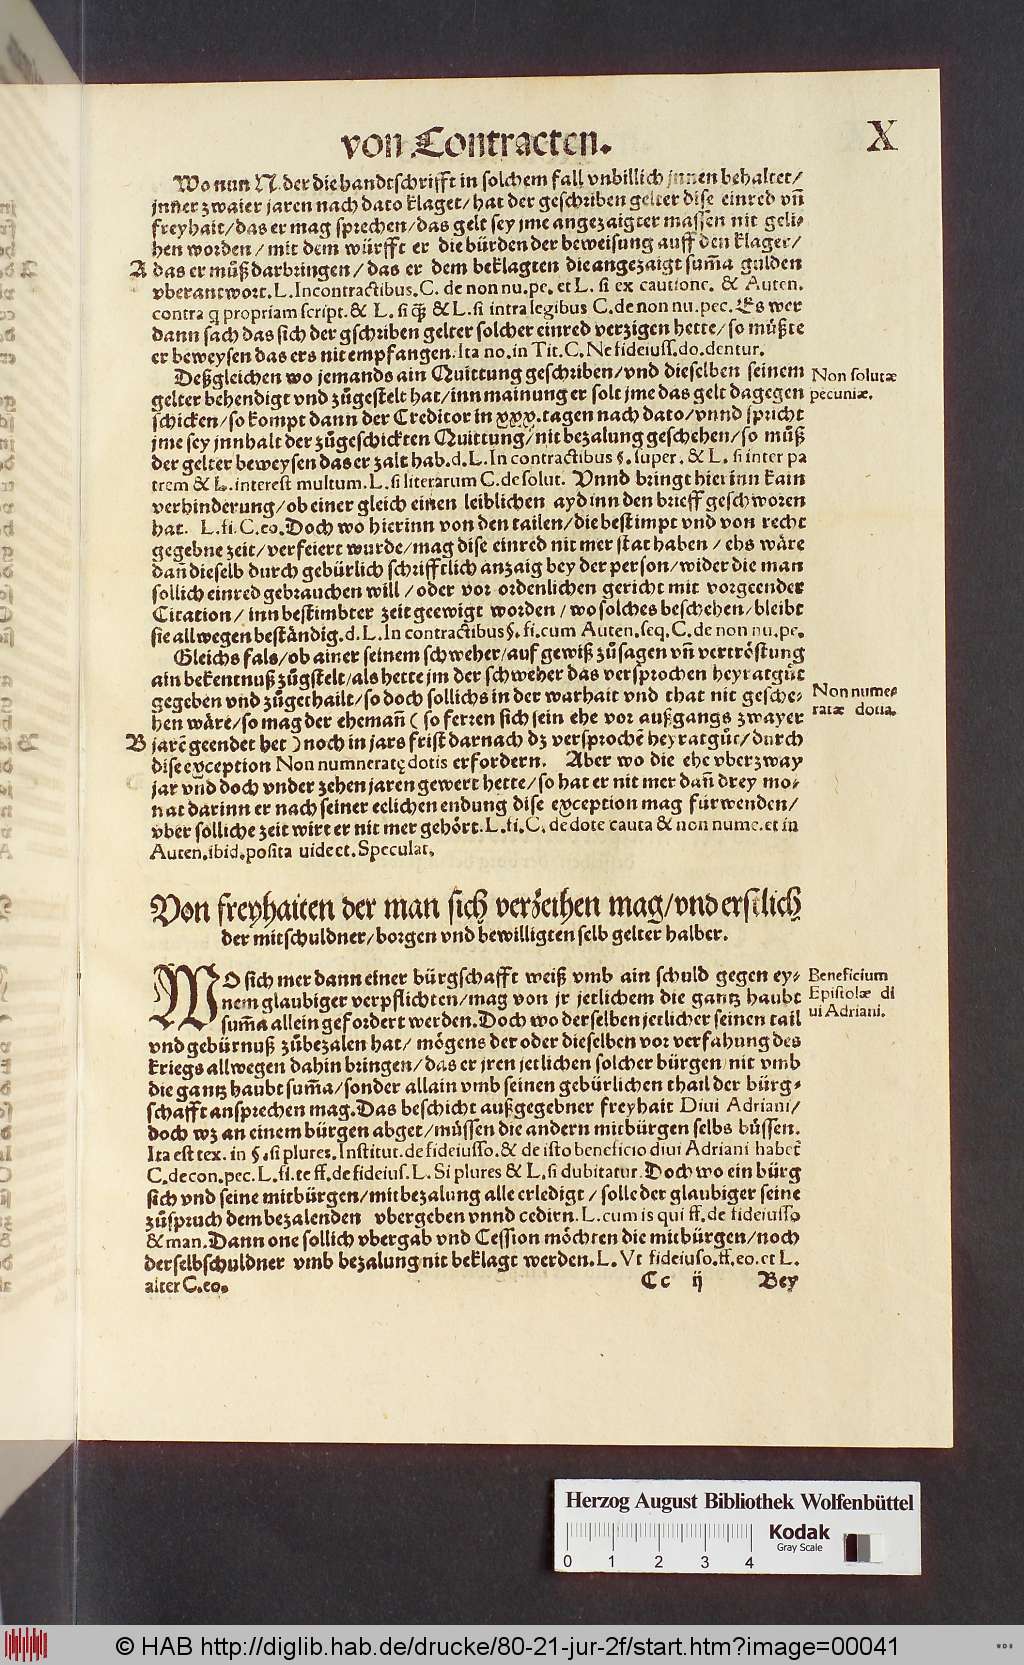 von Contracten.
X
Wo nun N. der die handtschrifft in solchem fall vnbillich jnnen behaltet/
jnner zwaier jaren nach dato klaget/ hat der geschriben gelter dise einred vñ
freyhait/ das er mag sprechen/ das gelt sey jme angezaigter massen nit geli-
hen worden/ mit dem würfft er die bürden der beweisung auff den klager/
A das er můß darbringen/ das er dem beklagten die angezaigt sum̃a gulden
vberantwort. L. In contractibus. C. de non nu. pe. et L. si ex cautione. & Auten.
contra q̃ propriam script. & L. si q̃ʒ & L. si intra legibus C. de non nu. pec. Es wer
dann sach das sich der gschriben gelter solcher einred verzigen hette/ so můßte
er beweysen das ers nit empfangen. Ita no. in Tit. C. Ne fideiuss. do. dentur.
Deßgleichen wo jemands ain Quittung geschriben/ vnd dieselben seinem
gelter behendigt vnd zůgestelt hat/ inn mainung er solt jme das gelt dagegen
schicken/ so kompt dann der Creditor in xxx. tagen nach dato/ vnnd spricht
jme sey jnnhalt der zůgeschickten Quittung/ nit bezalung geschehen/ so můß
der gelter beweysen das er zalt hab. d. L. In contractibus §. super. & L. si inter pa
trem & L. interest multum. L. si literarum C. de solut. Vnnd bringt hierinn kain
verhinderung/ ob einer gleich einen leiblichen ayd inn den brieff geschworen
hat. L. fi. C. eo. Doch wo hierinn von den tailen/ die bestimpt vnd von recht
gegebne zeit/ verfeiert wurde/ mag dise einred nit mer stat haben/ ehs wäre
dañ dieselb durch gebürlich schrifftlich anzaig bey der person/ wider die man
sollich einred gebrauchen will/ oder vor ordenlichen gericht mit vorgeender
Citation/ inn bestimbter zeit geewigt worden/ wo solches beschehen/ bleibt
sie allwegen beständig. d. L. In contractibus §. fi. cum Auten. seq. C. de non nu. pe.
Non solutæ
pecuniæ.
Gleichs fals/ ob ainer seinem schweher/ auf gewiß zůsagen vñ vertröstung
ain bekentnuß zůgstelt/ als hette jm der schweher das versprochen heyratgůt
gegeben vnd zůgethailt/ so doch sollichs in der warhait vnd that nit gesche-
hen wäre/ so mag der ehemañ (so ferren sich sein ehe vor außgangs zwayer
B jarẽ geendet het) noch in jars frist darnach dʒ versprochẽ heyratgůt/ durch
dise exception Non numneratę dotis erfordern. Aber wo die ehe vber zway
jar vnd doch vnder zehen jaren gewert hette/ so hat er nit mer dañ drey mo-
nat darinn er nach seiner eelichen endung dise exception mag fürwenden/
vber solliche zeit wirt er nit mer gehört. L. fi. C. de dote cauta & non nume. et in
Auten. ibid. posita uide et. Speculat.
Non nume-
ratæ dotia.
Von freyhaiten der man sich verzeihen mag/ vnd erstlich
der mitschuldner/ borgen vnd bewilligten selb gelter halber.
WO sich mer dann einer bürgschafft weiß vmb ain schuld gegen ey-
nem glaubiger verpflichten/ mag von jr jetlichem die gantz haubt
sum̃a allein gefordert werden. Doch wo derselben jetlicher seinen tail
vnd gebürnuß zůbezalen hat/ mögens der oder dieselben vor verfahung des
kriegs allwegen dahin bringen/ das er jren jetlichen solcher bürgen nit vmb
die gantz haubt sum̃a/ sonder allain vmb seinen gebürlichen thail der bürg-
schafft ansprechen mag. Das beschicht außgegebner freyhait Diui Adriani/
doch wʒ an einem bürgen abget/ müssen die andern mitbürgen selbs büssen.
Ita est tex. in §. si plures. Institut. de fideiusso. & de isto beneficio diui Adriani habet̃
C. de con. pec. L. fi. te ff. de fideius. L. Si plures & L. si dubitatur. Doch wo ein bürg
sich vnd seine mitbürgen/ mit bezalung alle erledigt/ solle der glaubiger seine
zůspruch dem bezalenden vbergeben vnnd cedirn. L. cum is qui ff. de fideiusso
& man. Dann one sollich vbergab vnd Cession möchten die mitbürgen/ noch
der selbschuldner vmb bezalung nit beklagt werden. L. Vt fideiuso. ff. eo. et L.
alter C. eo.
Beneficium
Epistolæ di
ui Adriani.
Cc ij Bey
Herzog August Bibliothek Wolfenbüttel
Kodak
Gray Scale
0 1 2 3 4
© HAB http://diglib.hab.de/drucke/80-21-jur-2f/start.htm?image=00041